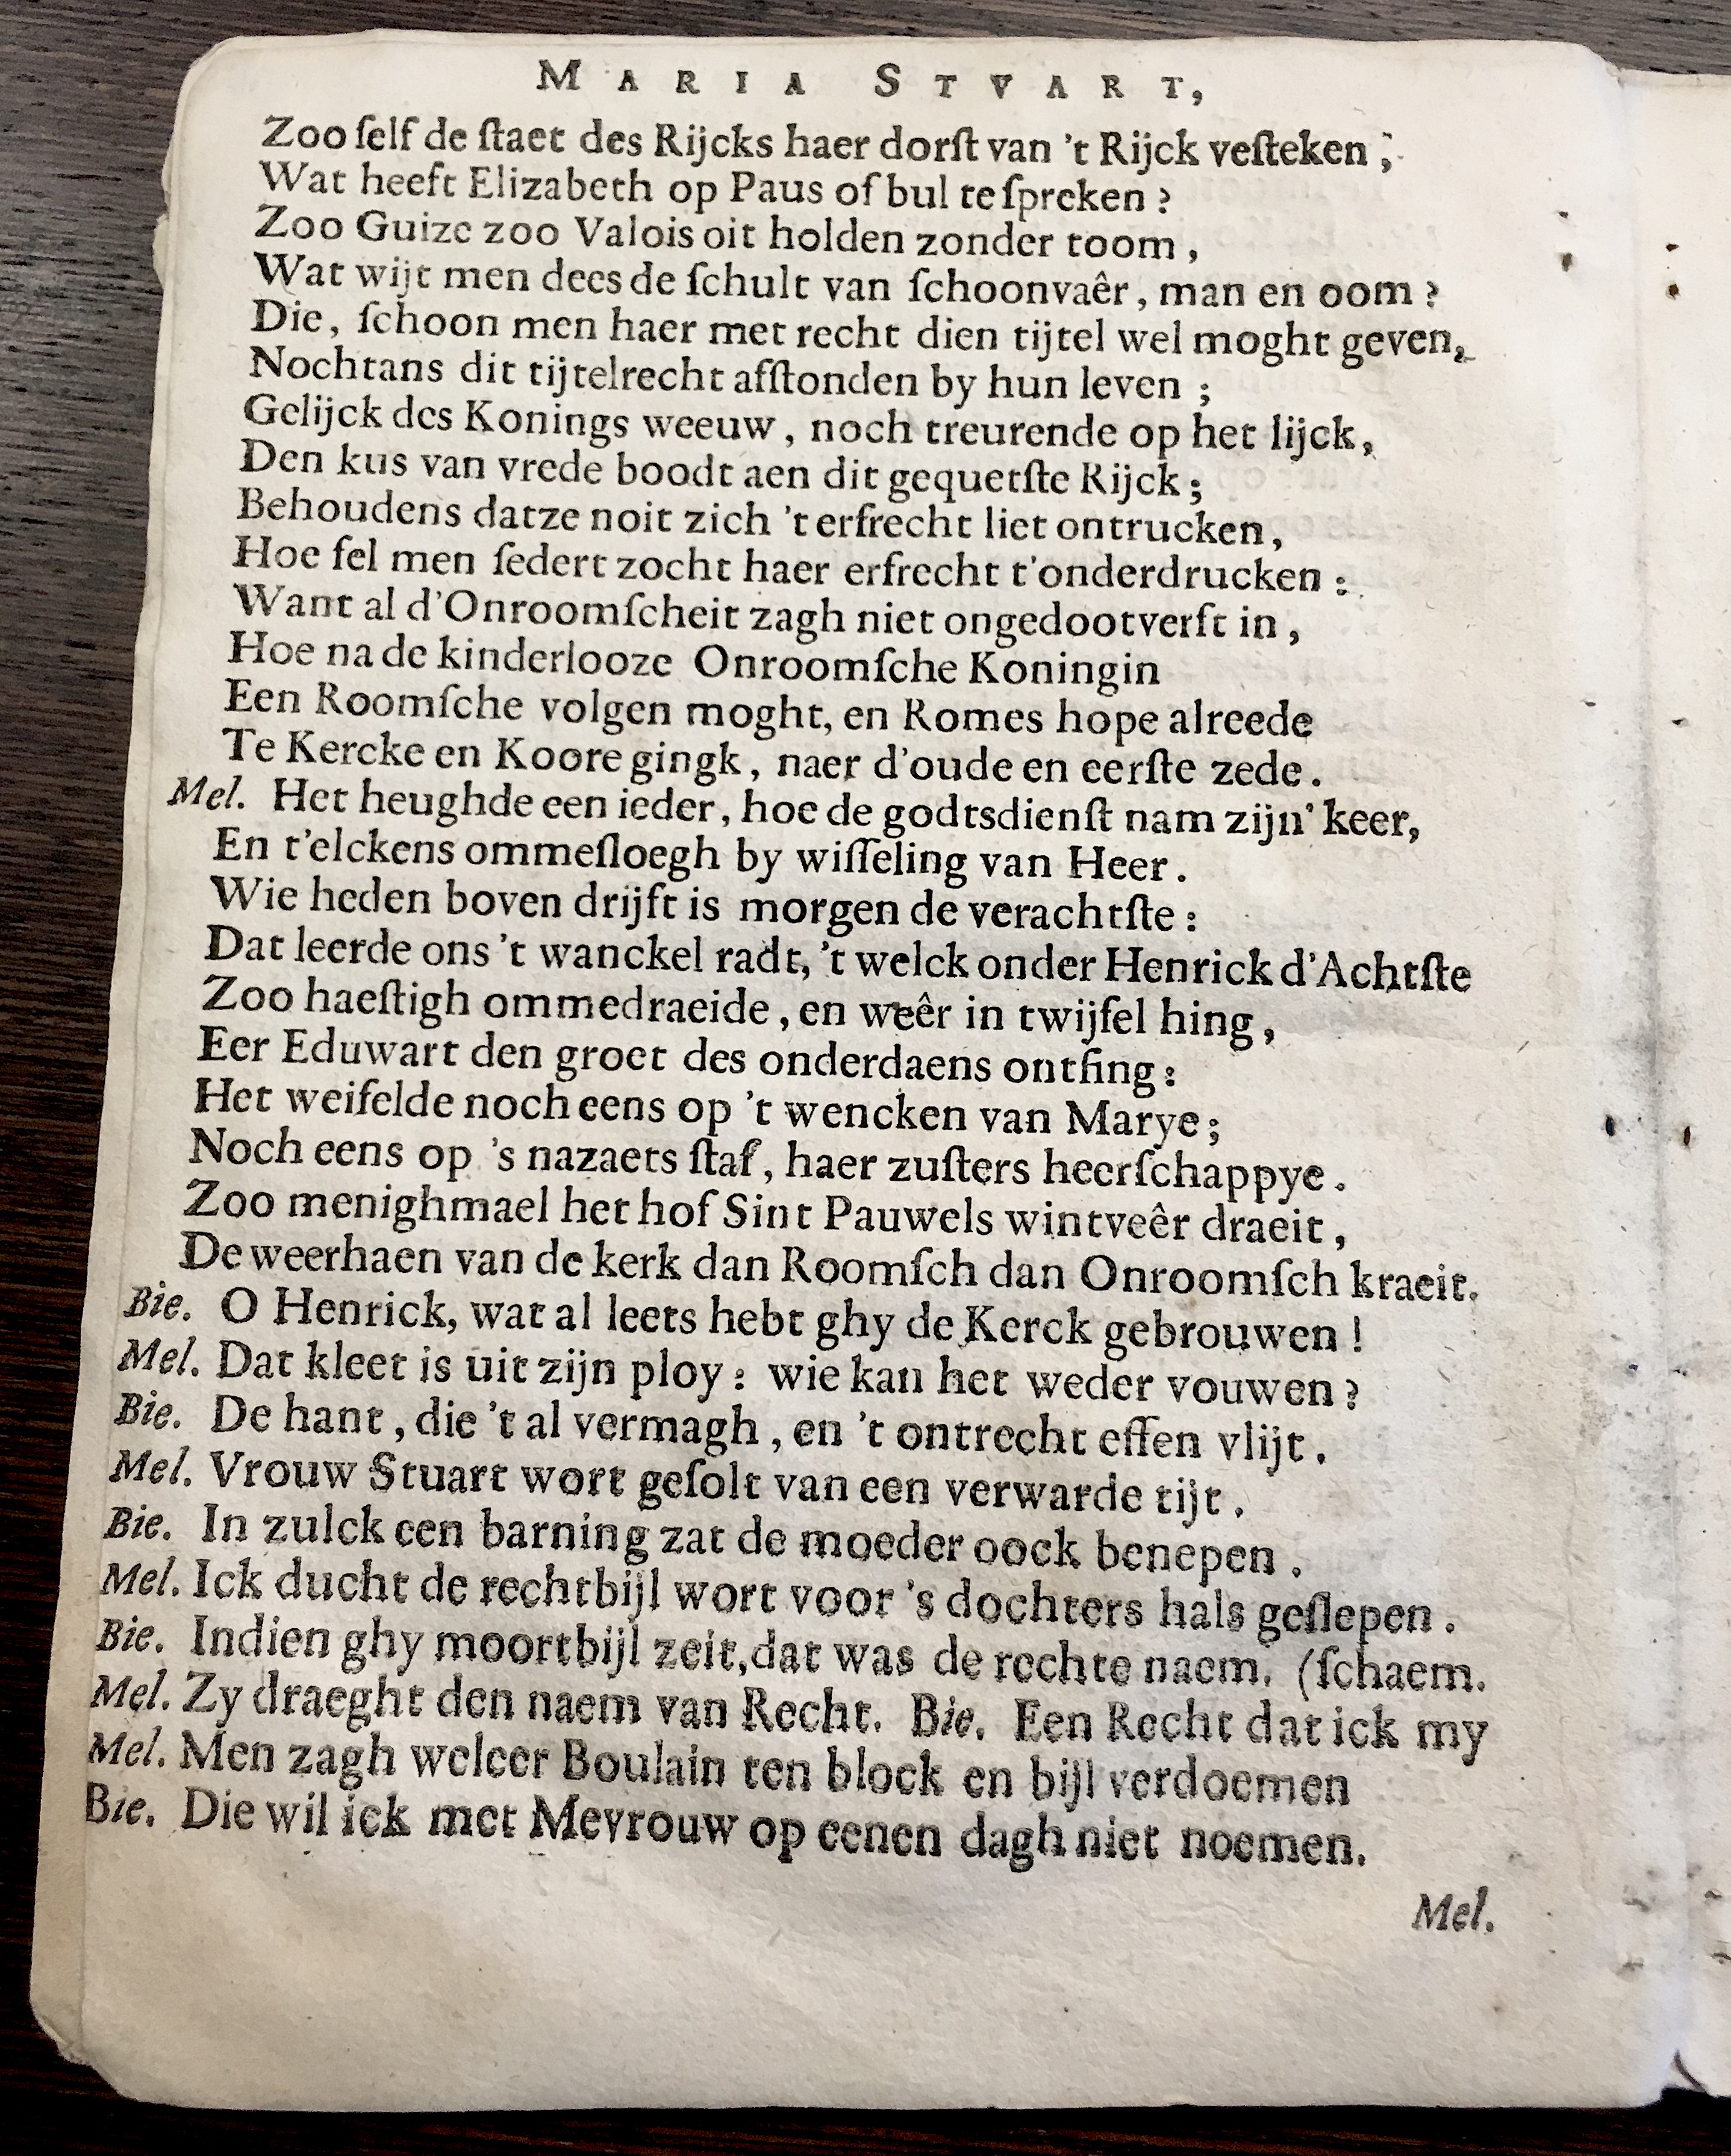 MARIA STVART,
Zoo ſelf de ſtaet des Rijcks haer dorſt van 't Rijck veſteken;
Wat heeft Elizabeth op Paus of bul te ſpreken?
Zoo Guize zoo Valois oit holden zonder toom,
Wat wijt men dees de ſchult van ſchoonvaêr, man en oom?
Die, ſchoon men haer met recht dien tijtel wel moght geven,
Nochtans dit tijtelrecht afſtonden by hun leven;
Gelijck des Konings weeuw, noch treurende op het lijck,
Den kus van vrede boodt aen dit gequetſte Rijck;
Behoudens datze noit zich 't erfrecht liet ontrucken,
Hoe fel men ſedert zocht haer erfrecht t'onderdrucken:
Want al d'Onroomſcheit zagh niet ongedootverft in,
Hoe na de kinderlooze Onroomſche Koningin
Een Roomſche volgen moght, en Romes hope alreede
Te Kercke en Koore gingk, naer d'oude en eerſte zede.
Mel. Het heughde een ieder, hoe de godtsdienſt nam zijn' keer,
En t'elckens ommeſloegh by wiſſeling van Heer.
Wie heden boven drijft is morgen de verachtſte:
Dat leerde ons 't wanckel radt, 't welck onder Henrick d'Achtſte
Zoo haeſtigh ommedraeide, en weêr in twijfel hing,
Eer Eduwart den groet des onderdaens ontfing:
Het weifelde noch eens op 't wencken van Marye;
Noch eens op 's nazaets ſtaf, haer zuſters heerſchappye.
Zoo menighmael het hof Sint Pauwels wintveêr draeit,
De weerhaen van de kerk dan Roomſch dan Onroomſch kraeit.
Bie. O Henrick, wat al leets hebt ghy de Kerck gebrouwen!
Mel. Dat kleet is uit zijn ploy: wie kan het weder vouwen?
Bie. De hant, die 't al vermagh, en 't ontrecht effen vlijt.
Mel. Vrouw Stuart wort geſolt van een verwarde tijt.
Bie. In zulck een barning zat de moeder oock benepen.
Mel. Ick ducht de rechtbijl wort voor 's dochters hals geſlepen.
Bie. Indien ghy moortbijl zeit, dat was de rechte naem. (ſchaem.
Mel. Zy draeght den naem van Recht. Bie. Een Recht dat ick my
Mel. Men zagh weleer Boulain ten block en bijl verdoemen
Bie. Die wil ick met Mevrouw op eenen dagh niet noemen.
Mel.